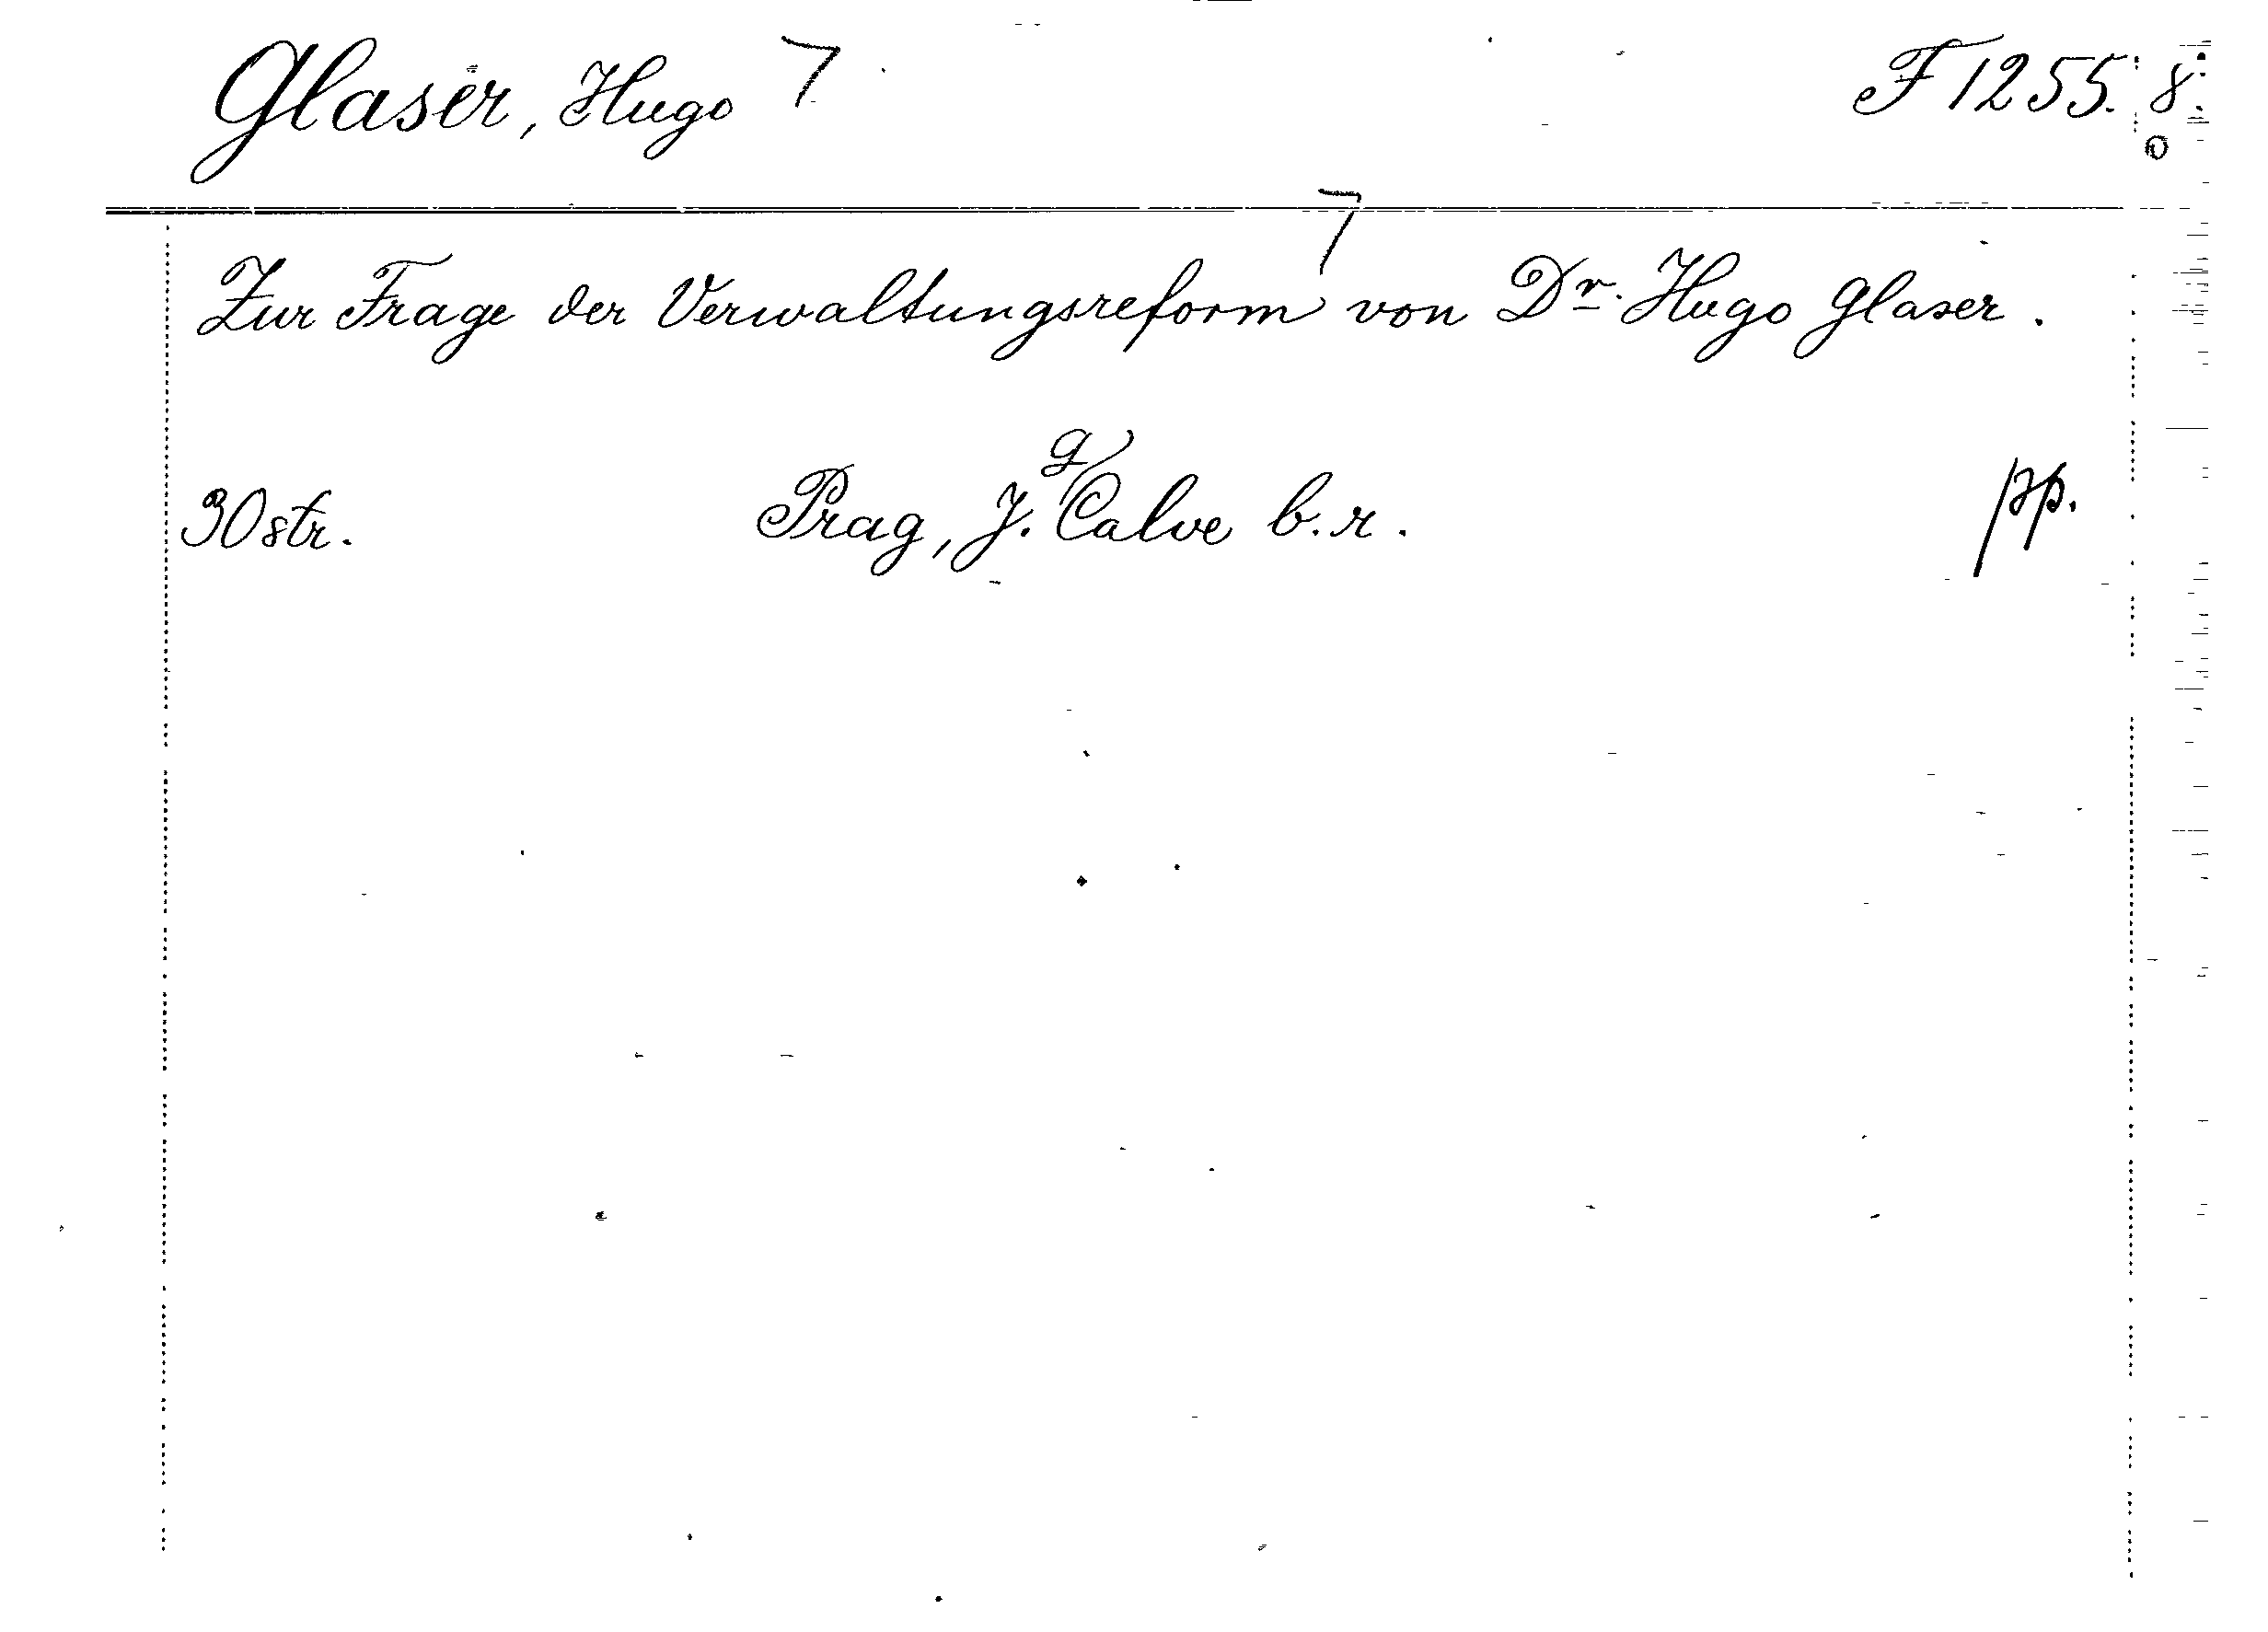 Glaser, Hugo 7 F 1255. 8.
0
Zur Frage der Verwaltungsreform 7 von Dr. Hugo Glaser.
30 str. Prag, J. G. Calve b. r. pp.